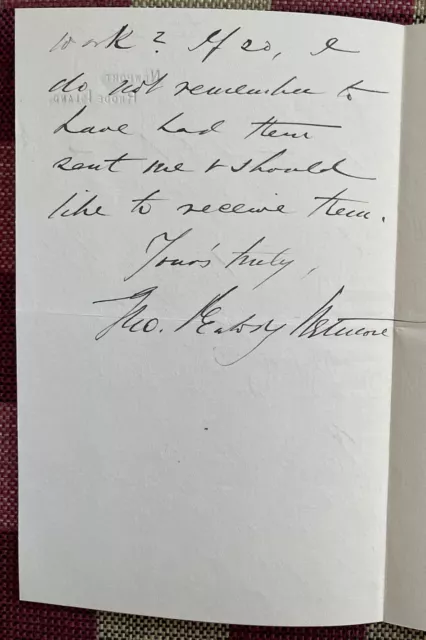 work? If so, I
do not remember to
have had them
sent me & should
like to receive them.
Your's truly,
Geo. Peabody Wetmore
NEWPORT
RHODE ISLAND